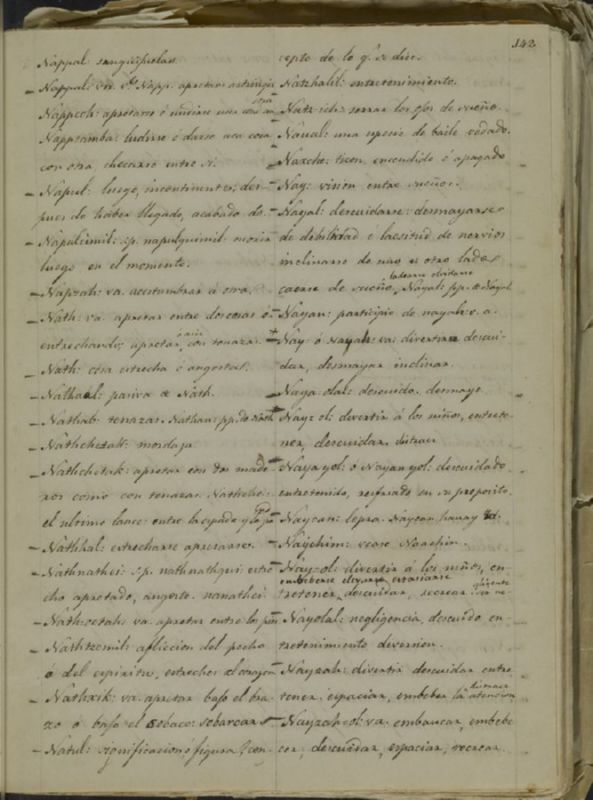 142
Nappal: sanguijuelas.
– Nappal: apretar
Nappcah: apretarse ó undirse una cosa
Nappcamba: ludirse ó darse una cosa
con otra checarse entre si.
– Naput: luego, incontinenter, des-
pues de haber llegado, acabado de
– Napulcimil: sp. napulquimil morir
luego en el momento.
– Napzah: va. acostumbrar á otro.
Nath: va. apretar entre dos cosas ó
estrechando; apretar, con tenazas.
– Nath: cosa estrecha ó angosta.
Nathaal: pasiva de Nath.
– Nathab: tenazas. Nathan: pp. de Nath
Nathcheta: mordaza
– Nathchetak: apretar con dos made-
ros como con tenazas. Nathché:
el ultimo lance: entre la espada y la pa
– Nathhal: estrecharse apretarse.
– Nathnathci: sp. nathnathqui: estre
cho apretado, angosto. nanathci
– Nath: cetah: va apretar entre los pies
– Nathtzemil: afliccion del pecho
ó del espiritu, estrechez del corazon
– Nathxik: va. apretar bajo el bra
zo ó bajo el sobaco: sobarcar
– Natul: significacion ó figura, con-
cepto de lo q.e se dice.
Natzhalil: entretenimiento.
Natz ich: cerrar los ojos de sueño.
Naual: una especie de baile vedado.
Naxche: tizon encendido ó apagado
Nay: vision entre sueños.
– Nayal: descuidarse: desmayarse
de debilidad ó lacsitud de nervios
inclinarse de uno u otro lado
caerse de sueño, Nayal: pp. de Nayal
Nayan: participio de nayah: v. a.
+ Nay: ó nayah: va: divertirse descui-
dar, desmayar inclinar.
Naya olal: descuido, desmayo
– Nayz ol: divertir á los niños, entrete
ner, descuidar, distraer
– Naya yol: ó Nayan yol: descuidado
entretenido, resfriado en su proposito.
– Naycan: lepra.
– Naychim: vease Noochim.
– Nayzol: divertir á los niños, en-
embeberse elevarse
tretener, descuidar, recrear
– Nayolal: negligencia, descuido en-
tretenimiento diversion.
– Nayzah: divertir descuidar entre
distraer
tener, espaciar, embeber la atencion
– Nayzah-ol: va. embaucar, embebe
cer, descuidar, espaciar, recrear.